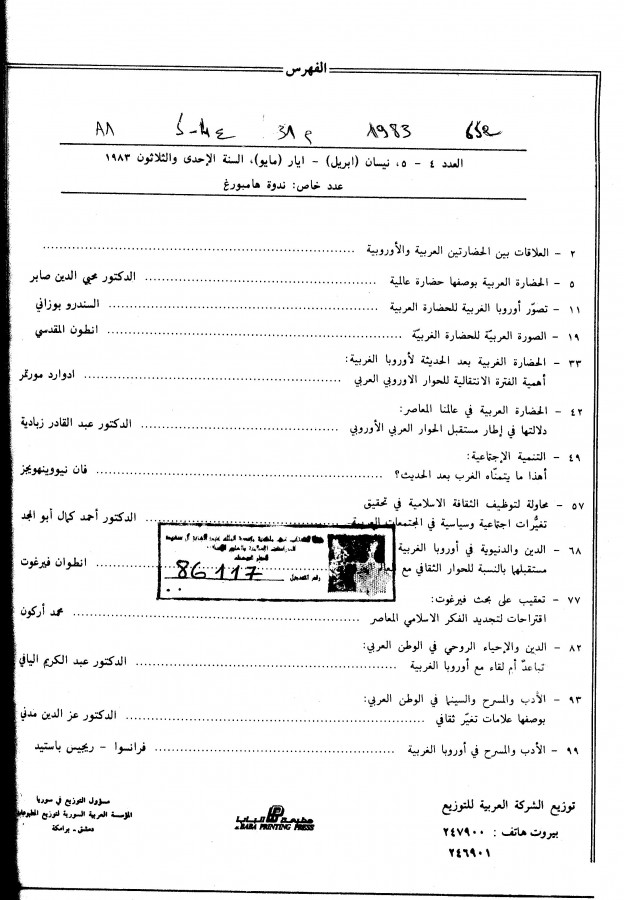 الفهرس
٨٨ ٤-٥ ٣١ م 1983
العدد ٤ - ٥، نيسان (ابريل) - ايار (مايو)، السنة الإحدى والثلاثون ١٩٨٣
عدد خاص: ندوة هامبورغ
٢ - العلاقات بين الحضارتين العربية والأوروبية
٥ - الحضارة العربية بوصفها حضارة عالمية الدكتور محيي الدين صابر
١١ - تصوّر أوروبا الغربية للحضارة العربية السندرو بوزاني
١٩ - الصورة العربيّة للحضارة الغربيّة انطون المقدسي
٣٣ - الحضارة الغربية بعد الحديثة لأوروبا الغربية:
أهمية الفترة الانتقالية للحوار الاوروبي العربي ادوارد مورتمر
٤٢ - الحضارة العربية في عالمنا المعاصر:
دلالتها في إطار مستقبل الحوار العربي الأوروبي الدكتور عبد القادر زبادية
٤٩ - التنمية الإجتماعية:
أهذا ما يتمنّاه الغرب بعد الحديث؟ فان نيووينهويجز
٥٧ - محاولة لتوظيف الثقافة الاسلامية في تحقيق
تغيُّرات اجتماعية وسياسية في المجتمعات العربية الدكتور أحمد كمال أبو المجد
٦٨ - الدين والدنيوية في أوروبا الغربية
مستقبلهما بالنسبة للحوار الثقافي مع انطوان فيرغوت
رقم التسجيل 86117
٧٧ - تعقيب على بحث فيرغوت:
اقتراحات لتجديد الفكر الاسلامي المعاصر محمد أركون
٨٢ - الدين والإحياء الروحي في الوطن العربي:
تباعدٌ أم لقاء مع أوروبا الغربية الدكتور عبد الكريم اليافي
٩٣ - الأدب والمسرح والسينما في الوطن العربي:
بوصفها علامات تغيّر ثقافي الدكتور عز الدين مدني
٩٩ - الأدب والمسرح في أوروبا الغربية فرانسوا - ريجيس باستيد
توزيع الشركة العربية للتوزيع
بيروت هاتف : ٢٤٧٩٠٠
٢٤٦٩٠١
مطبعة البابا
BABA PRINTING PRESS
مسؤول التوزيع في سوريا
المؤسسة العربية السورية لتوزيع المطبوعات
دمشق - برامكة